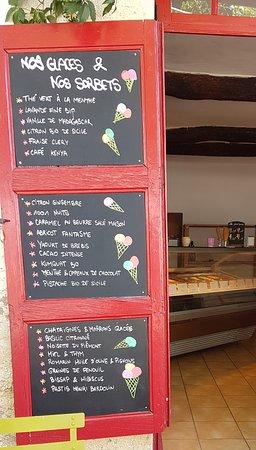 NOS GLACES &
NOS SORBETS
THÉ VERT À LA MENTHE
LAVANDE FINE BIO
VANILLE DE MADAGASCAR
CITRON BIO DE SICILE
FRAISE CLERY
CAFÉ KENYA
CITRON GINGEMBRE
1001 NUITS
CARAMEL AU BEURRE SALÉ MAISON
ABRICOT FANTASME
YAOURT DE BREBIS
CACAO INTENSE
KUMQUAT BIO
MENTHE & COPEAUX DE CHOCOLAT
PISTACHE BIO DE SICILE
CHATAIGNES & MARRONS GLACÉS
BASILIC CITRONNÉ
NOISETTE DU PIÉMONT
MIEL & THYM
ROMARIN HUILE D'OLIVE & PIGNONS
GRAINES DE FENOUIL
BISSAP & HIBISCUS
PASTIS HENRI BARDOUIN